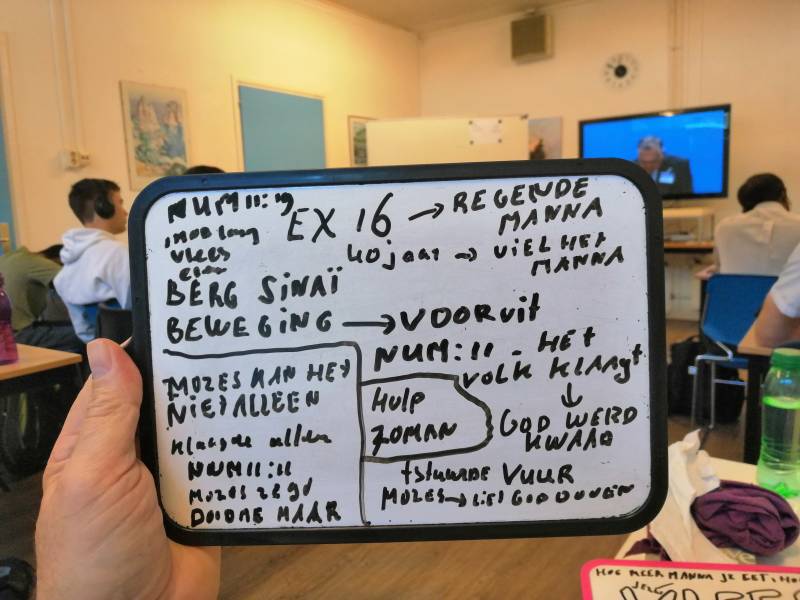 NUM 11:19
EX 16 → REGENDE
MANNA
vlees
40 jaar → VIEL HET
MANNA
BERG SINAÏ
BEWEGING → VOORUIT
NUM: 11 - HET
VOLK KLAAGT
↓
GOD WERD
KWAAD
MOZES KAN HET
NIET ALLEEN
klaagde allen
NUM 11:11
MOZES zegt
DOODME MAAR
HULP
70MAN
+stuurde VUUR
MOZES →
HOE MEER MANNA JE EET, HOE